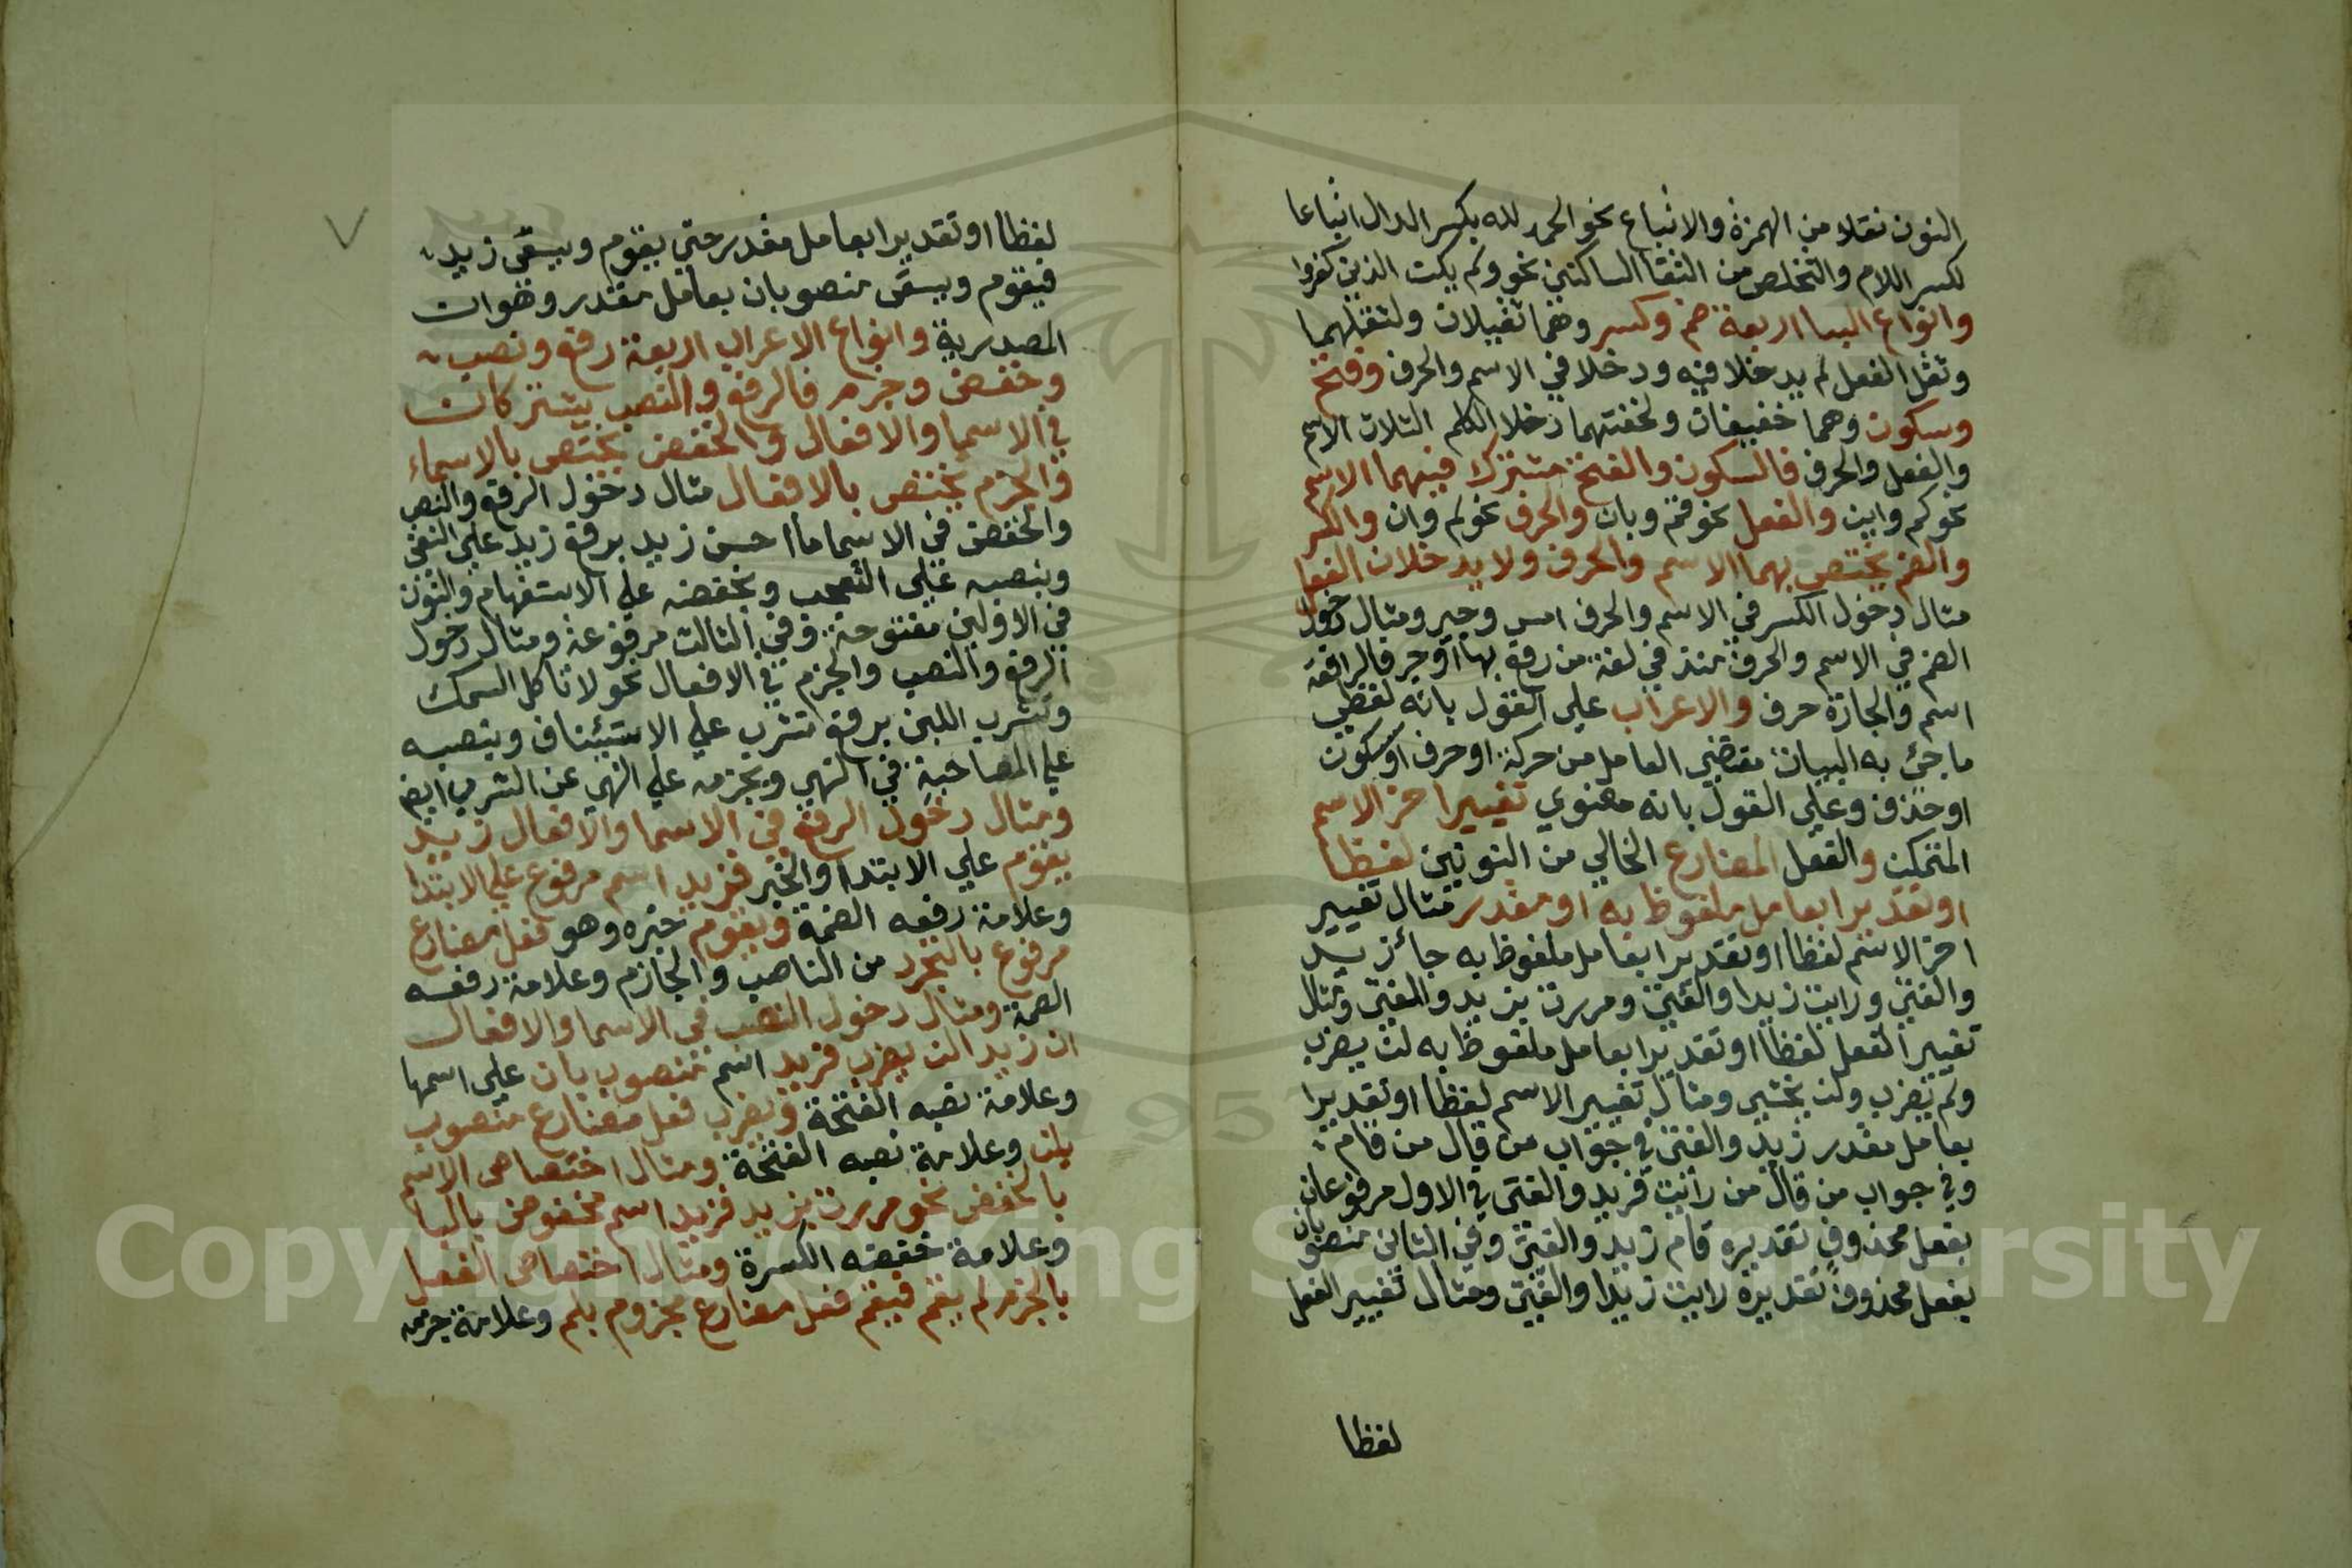 النون نقلا من الهمزة والاتباع نحو الحمد لله بكسر الدال اتباعا
لكسر اللام والتخلص من التقا الساكنين نحو ولم يكن الذين كفروا
وانواع البنا اربعة ضم وكسر وهما ثقيلان ولثقلهما
وثقل الفعل لم يدخلا فيه ودخلا في الاسم والحرف وفتح
وسكون وهما خفيفان ولخفتهما دخلا الكلم الثلاث الاسم
والفعل والحرف فالسكون والفتح مشترك فيهما الاسم
نحو كم واين والفعل نحو قم وبان والحرف نحو لم وان والكسر
والضم يختص بهما الاسم والحرف ولا يدخلان الفعل
مثال دخول الكسر في الاسم والحرف امس وجير ومثال دخول
الضم في الاسم والحرف منذ في لغة من رفع بها او جر فالرافعة
اسم والجارة حرف والاعراب على القول بانه لفظي
ما جئ به لبيان مقتضي العامل من حركة او حرف او سكون
او حذف وعلي القول بانه معنوي تغيير اخر الاسم
المتمكن والفعل المضارع الخالي من النونين لفظا
او تقديرا بعامل ملفوظ به او مقدر مثال تغيير
اخر الاسم لفظا او تقديرا بعامل ملفوظ به جا زيد
والفتى ورايت زيدا والفتى ومررت بزيد والفتى ومثال
تغيير الفعل لفظا او تقديرا بعامل ملفوظ به لن يضرب
ولم يضرب ولن يخشى ومثال تغيير الاسم لفظا او تقديرا
بعامل مقدر زيد والفتى في جواب من قال من قام
وفي جواب من قال من رايت فزيد والفتى في الاول مرفوعان
بفعل محذوف تقديره قام زيد والفتى وفي الثاني منصوبان
بفعل محذوف تقديره رايت زيدا والفتى ومثال تغيير الفعل
لفظا
لفظا او تقديرا بعامل مقدر حتي يقوم ويسقى زيد
فيقوم ويسقى منصوبان بعامل مقدر وهو ان
المصدرية وانواع الاعراب اربعة رفع ونصب
وخفض وجزم فالرفع والنصب يشتركان
في الاسما والافعال والخفض يختص بالاسماء
والجزم يختص بالافعال مثال دخول الرفع والنصب
والخفض في الاسما ما احسن زيد برفع زيد علي النفي
وبنصبه علي التعجب وبخفضه علي الاستفهام والنون
في الاولين مفتوحة وفي الثالث مرفوعة ومثال دخول
الرفع والنصب والجزم في الافعال نحو لا تاكل السمك
وتشرب اللبن برفع تشرب علي الاستئناف وبنصبه
علي المصاحبة في النهي وبجزمه علي النهي عن الشرب ايضا
ومثال دخول الرفع في الاسما والافعال زيد
يقوم علي الابتدا والخبر فزيد اسم مرفوع علي الابتدا
وعلامة رفعه الضمة ويقوم خبره وهو فعل مضارع
مرفوع بالتجرد من الناصب والجازم وعلامة رفعه
الضمة ومثال دخول النصب في الاسما والافعال
ان زيدا لن يضرب فزيد اسم منصوب بان علي اسمها
وعلامة نصبه الفتحة ويضرب فعل مضارع منصوب
بلن وعلامة نصبه الفتحة ومثال اختصاص الاسم
بالخفض نحو مررت بزيد فزيد اسم مخفوض بالبا
وعلامة خفضه الكسرة ومثال اختصاص الفعل
بالجزم لم يقم فيقم فعل مضارع مجزوم بلم وعلامة جزمه
1957
Copyright © King Saud University